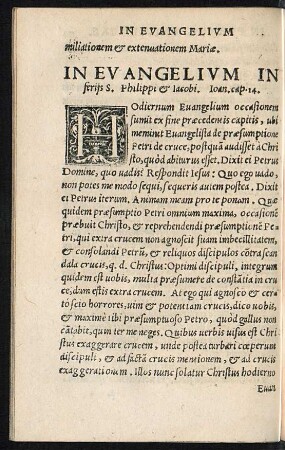 IN EVANGELIVM
miliationem & extenuationem Mariæ.
IN EVANGELIVM IN
ferijs S. Philippi & Iacobi. Ioan. cap. 14.
HOdiernum Euangelium occasionem
sumit ex fine præcedentis capitis, ubi
meminit Euangelista de præsumptione
Petri de cruce, postquã audisset à Chri-
sto, quòd abiturus esset. Dixit ei Petrus
Domine, quo uadis? Respondit Iesus: Quo ego uado,
non potes me modo sequi, sequeris autem postea. Dixit
ei Petrus iterum, Animam meam pro te ponam. Quæ
quidem præsumptio Petri omnium maxima, occasionẽ
præbuit Christo, & reprehendendi præsumptionẽ Pe-
tri, qui extra crucem non agnoscit suam imbecillitatem,
& consolandi Petrũ, & reliquos discipulos cõtra scan
dala crucis, q. d. Christus: Optimi discipuli, integrum
quidem est uobis, multa præsumere de constãtia in cru-
ce, dum estis extra crucem. At ego qui agnosco & cer-
tò scio horrores, uim & potentiam crucis, dico uobis,
& maximè tibi præsumptuoso Petro, quòd gallus non
cãtabit, quin ter me neges. Quibus uerbis uisus est Chri
stus exaggerare crucem, unde postea turbari cœperunt
discipuli, & ad factã crucis mentionem, & ad crucis
exaggerationem. Illos nunc solatur Christus hodierno
Euan